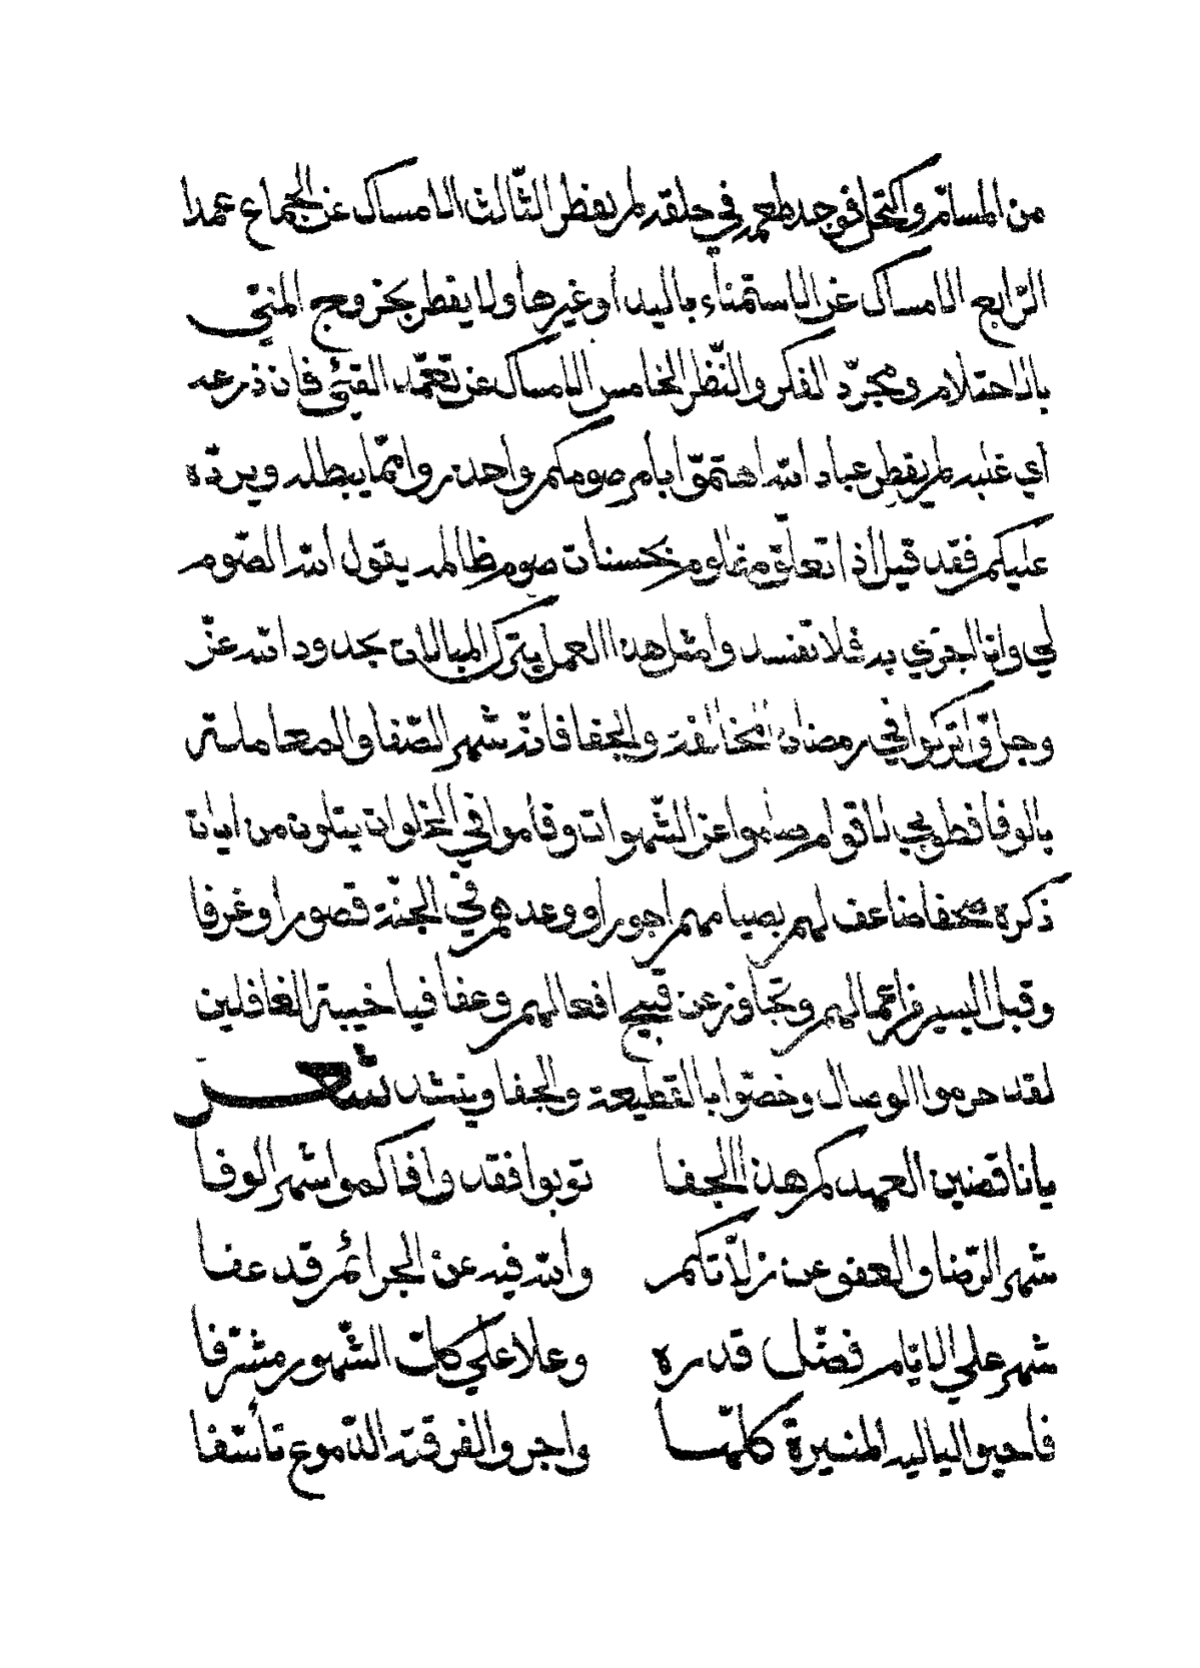 من المسام واكتحل فوجد طعمه في حلقه لم يفطر الثّالث الامساك عن الجماع عمدا
الرّابع الامساك عن الاستمناء باليد أو غيرها ولا يفطر بخروج المنيّ
بالاحتلام ومجرّد الفكر والنّظر الخامس الامساك عن تعمّد القيئ فان ذرعه
أي غلبه لم يفطر عباد الله اهتمّوا بأمر صومكم واحذروا ممّا يبطله ويردّه
عليكم فقد قيل اذا تعلّق مظلوم بحسنات صوم ظالمه يقول الله الصّوم
لي وانا اجزي به فلا تفسدوا مثل هذا العمل بترك المبالات بحدود الله عزّ
وجلّ واتركوا في رمضان المخالفة والجفا فانّه شهر الصّفا والمعاملة
بالوفا فطوبى لاقوام صاموا عن الشّهوات وقاموا في الخلوات يتلون من ايات
ذكره صحفا ضاعف لهم بصيامهم اجورا ووعدهم في الجنّة قصورا وغرفا
وقبل اليسير من اعمالهم وتجاوز عن قبيح افعالهم وعفا فيا خيبة الغافلين
لقد حرموا الوصال وخصّوا بالقطيعة والجفا وينشد شعر
يا ناقضين العهد كم هذا الجفا توبوا فقد وافاكموا شهر الوفا
شهر الرّضا والعفو عن زلّاتكم والله فيه عن الجرائم قد عفا
شهر على الايّام فضّل قدره وعلا على كلّ الشّهور مشرّفا
فاحيوا لياليه المنيرة كلّها واجروا لفرقته الدّموع تأسّفا